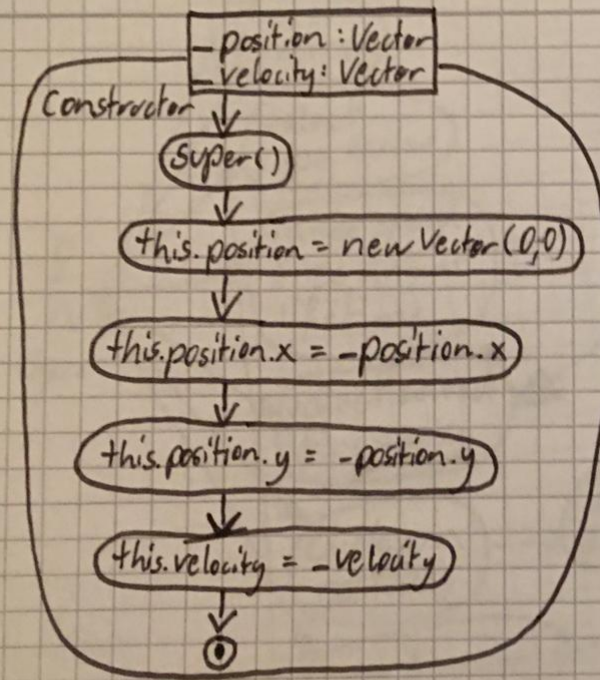 _position : Vector
_velocity : Vector
Constructor
super()
this.position = new Vector(0,0)
this.position.x = _position.x
this.position.y = _position.y
this.velocity = _velocity